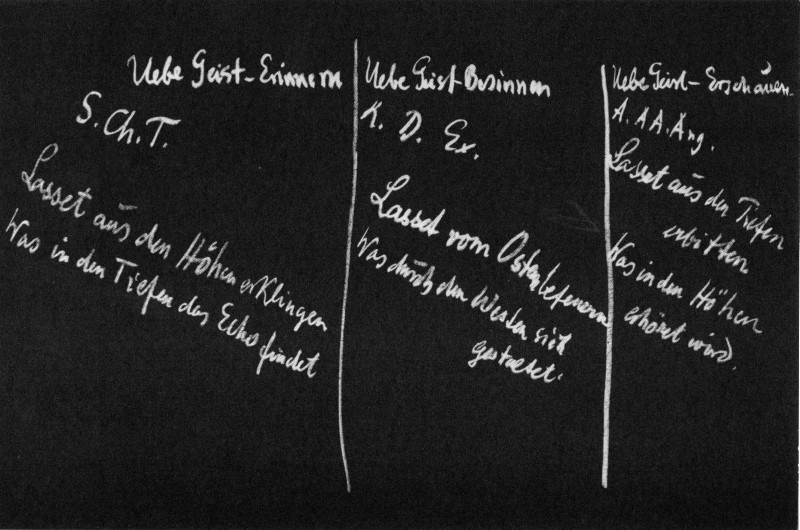 Uebe Geist-Erinnern
S. Ch. T.
Lasset aus den Höhen erklingen
Was in den Tiefen das Echo findet
Uebe Geist-Besinnen
K. D. Ex.
Lasset vom Osten befeuern
Was durch den Westen sich
gestaltet.
Uebe Geist-Erschauen.
A. AA. Ang.
Lasset aus den Tiefen
erbitten
Was in den Höhen
erhöret wird.